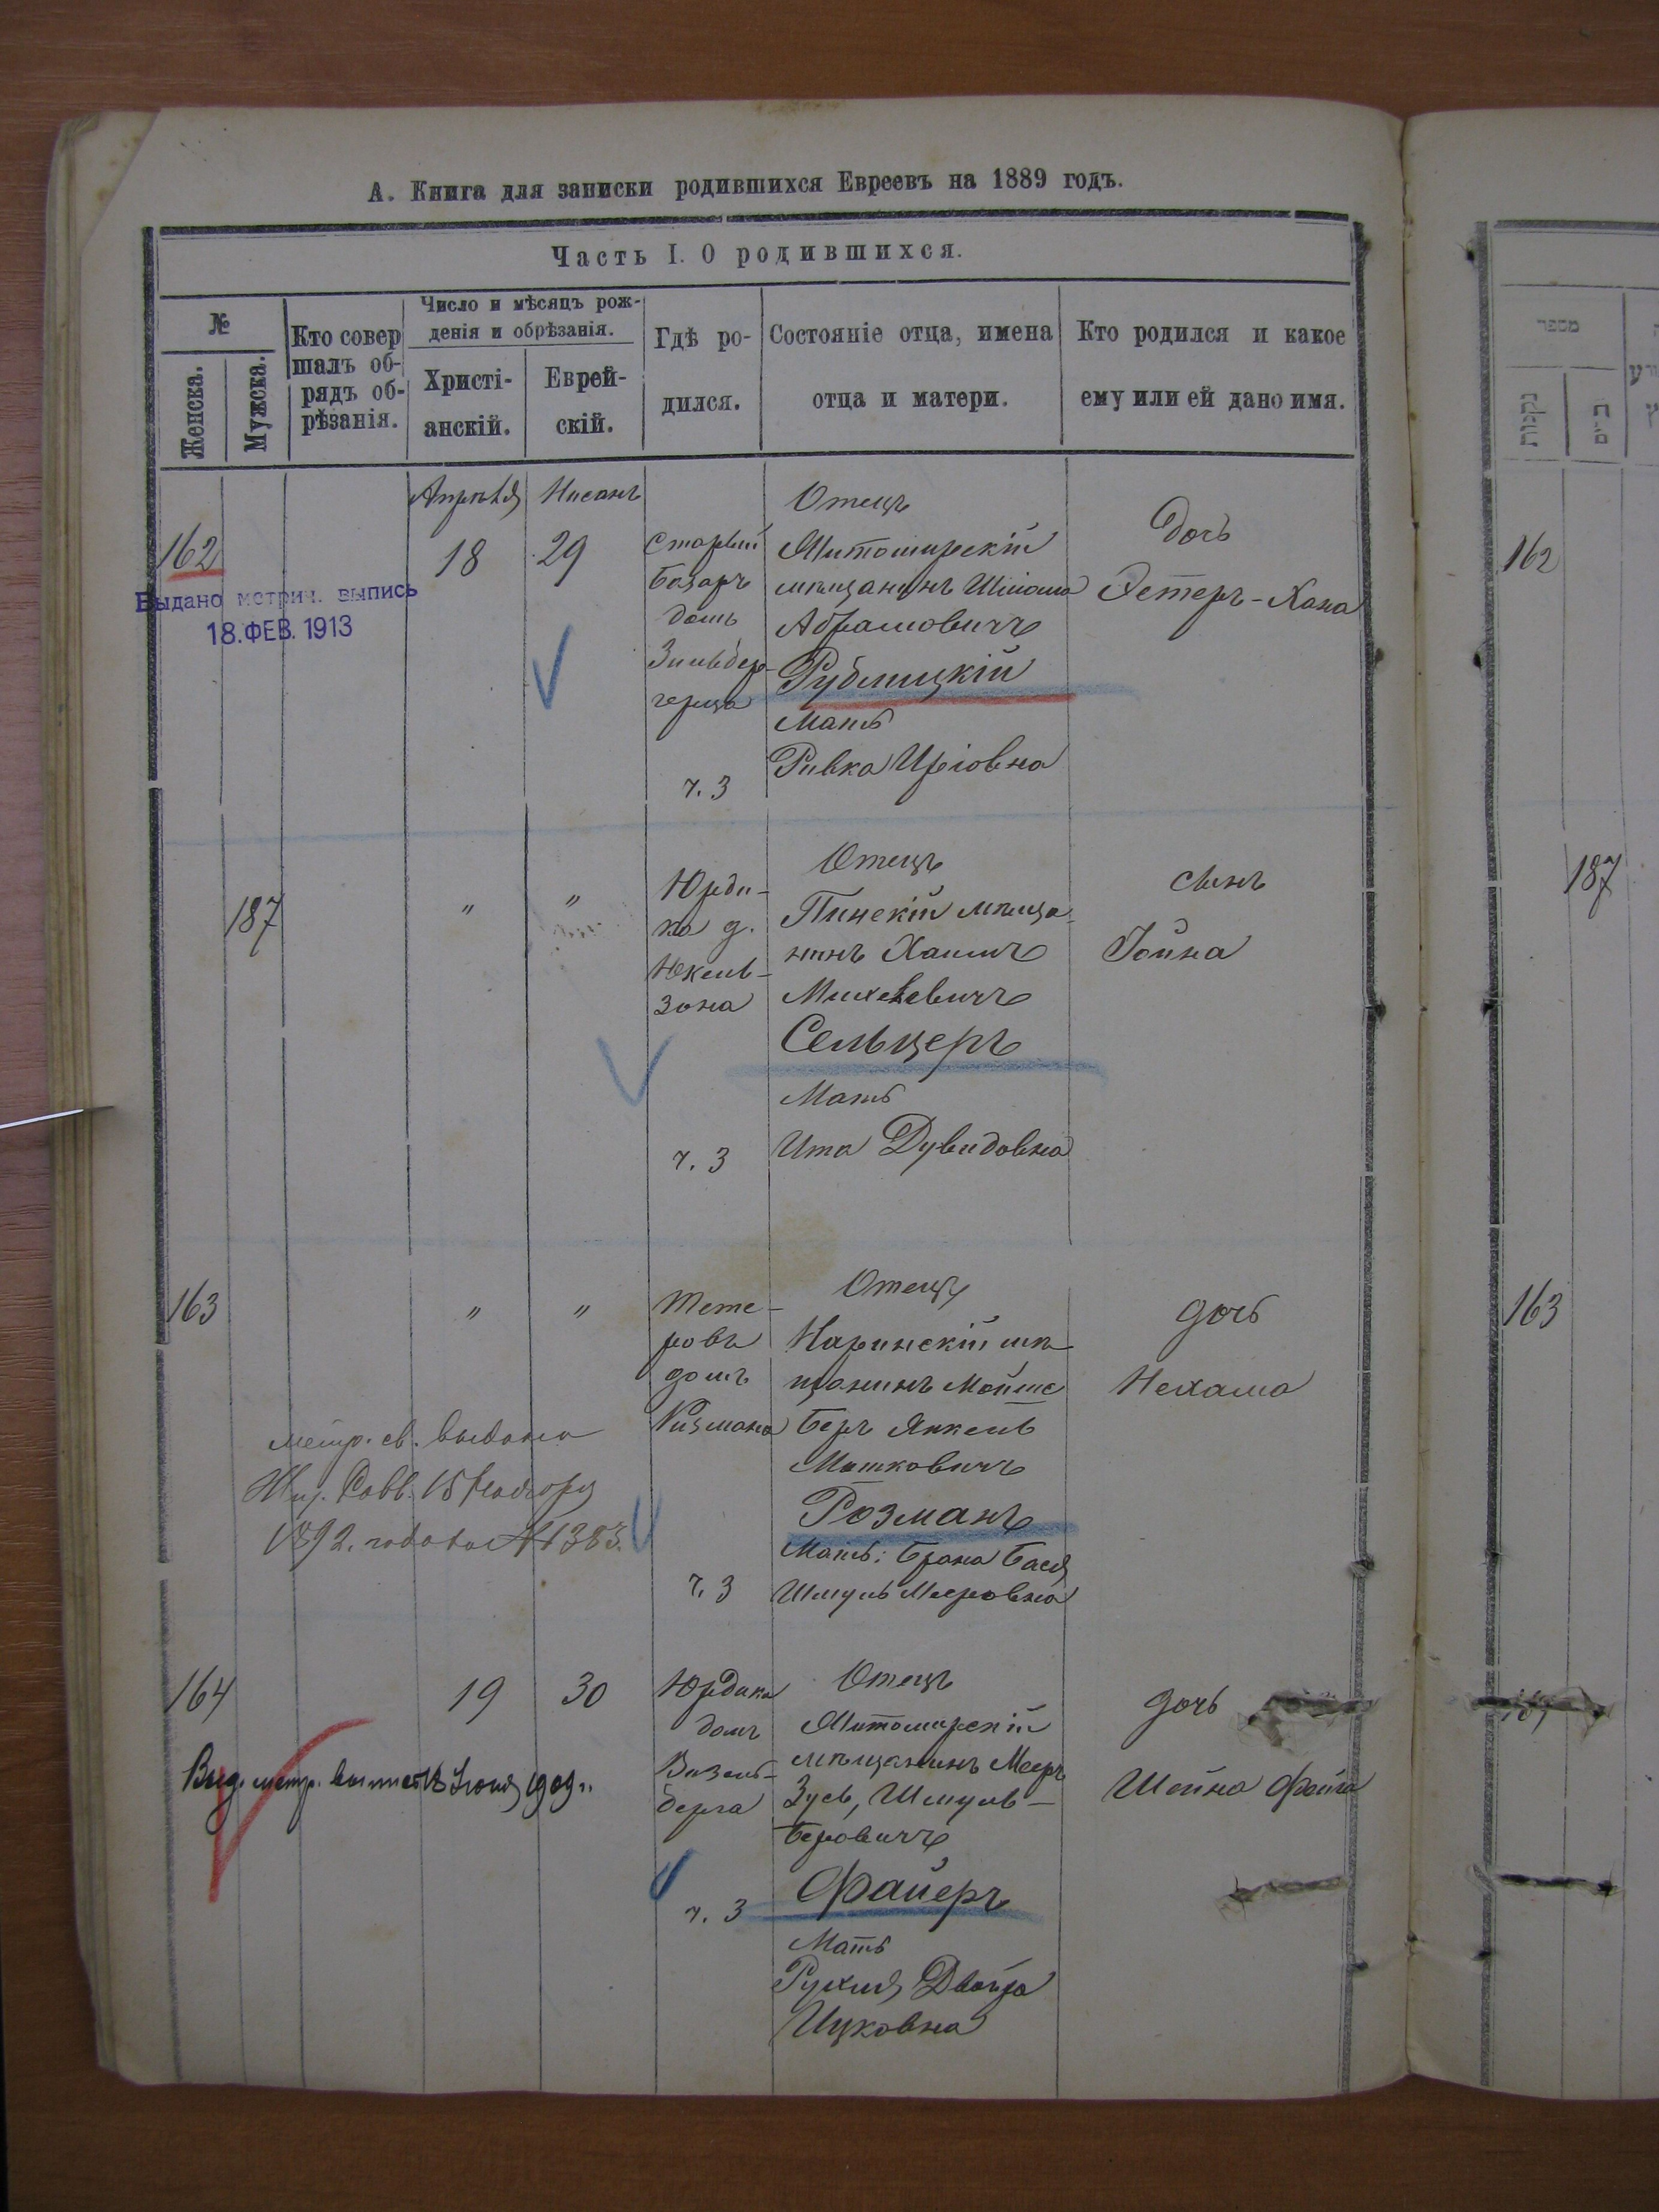 А. Книга для записки родившихся Евреевъ на 1889 годъ.
Часть I. О родившихся.
№
Женска.
Мужска.
Кто совер
шалъ об-
рядъ об-
рѣзанія.
Число и мѣсяцъ рож-
денія и обрѣзанія.
Христі-
анскій.
Еврей-
скій.
Гдѣ ро-
дился.
Состояніе отца, имена
отца и матери.
Кто родился и какое
ему или ей дано имя.
162
Выдано метрич. выпись
18. ФЕВ. 1913
Апрѣля
18
Нисанъ
29
Старый
базаръ
домъ
Зильбер-
герца
ч. 3
Отецъ
Житомирскій
мѣщанинъ
Абрамовичъ
Рублицкій
Мать
Ривка
Дочь
Эстеръ-Хана
187
"
"
Юрди-
ка д.
Юкель-
зона
ч. 3
Отецъ
Пинскій мѣща-
нинъ Хаимъ
Михелевичъ
Сельцеръ
Мать
Ита Дувидовна
сынъ
Іойна
163
"
"
метр. св. выдано
Жит. Равв. 15
1892. года за № 1383.
Тете-
ровъ
домъ
Ризмана
ч. 3
Отецъ
Наринскій мѣ-
щанинъ Мойше
Беръ Янкель
Мошковичъ
Розманъ
Мать: Брана Бася
Шмуль Мееровна
дочь
Нехама
164
19
30
Выд. метр. выпись Іюня 1909 г.
Юрдика
домъ
Визель-
берга
ч. 3
Отецъ
Житомирскій
мѣщанинъ Мееръ
Зусь, Шмуль-
Беровичъ
Файеръ
Мать
Рухля Двойра
Ицковна
дочь
Шейна Фейга
מספר
נקבות
זכרים
162
187
163